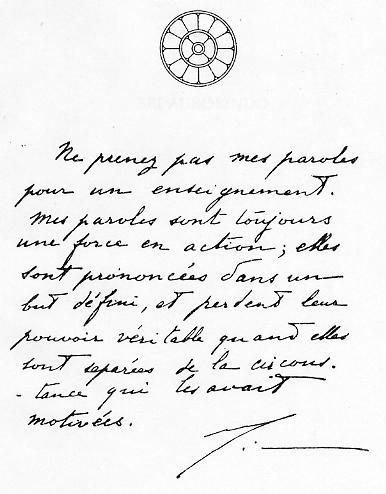 Ne prenez pas mes paroles
pour un enseignement.
Mes paroles sont toujours
une force en action; elles
sont prononcées dans un
but défini, et perdent leur
pouvoir véritable quand elles
sont separées de la circons-
-tance qui les avait
motivées.